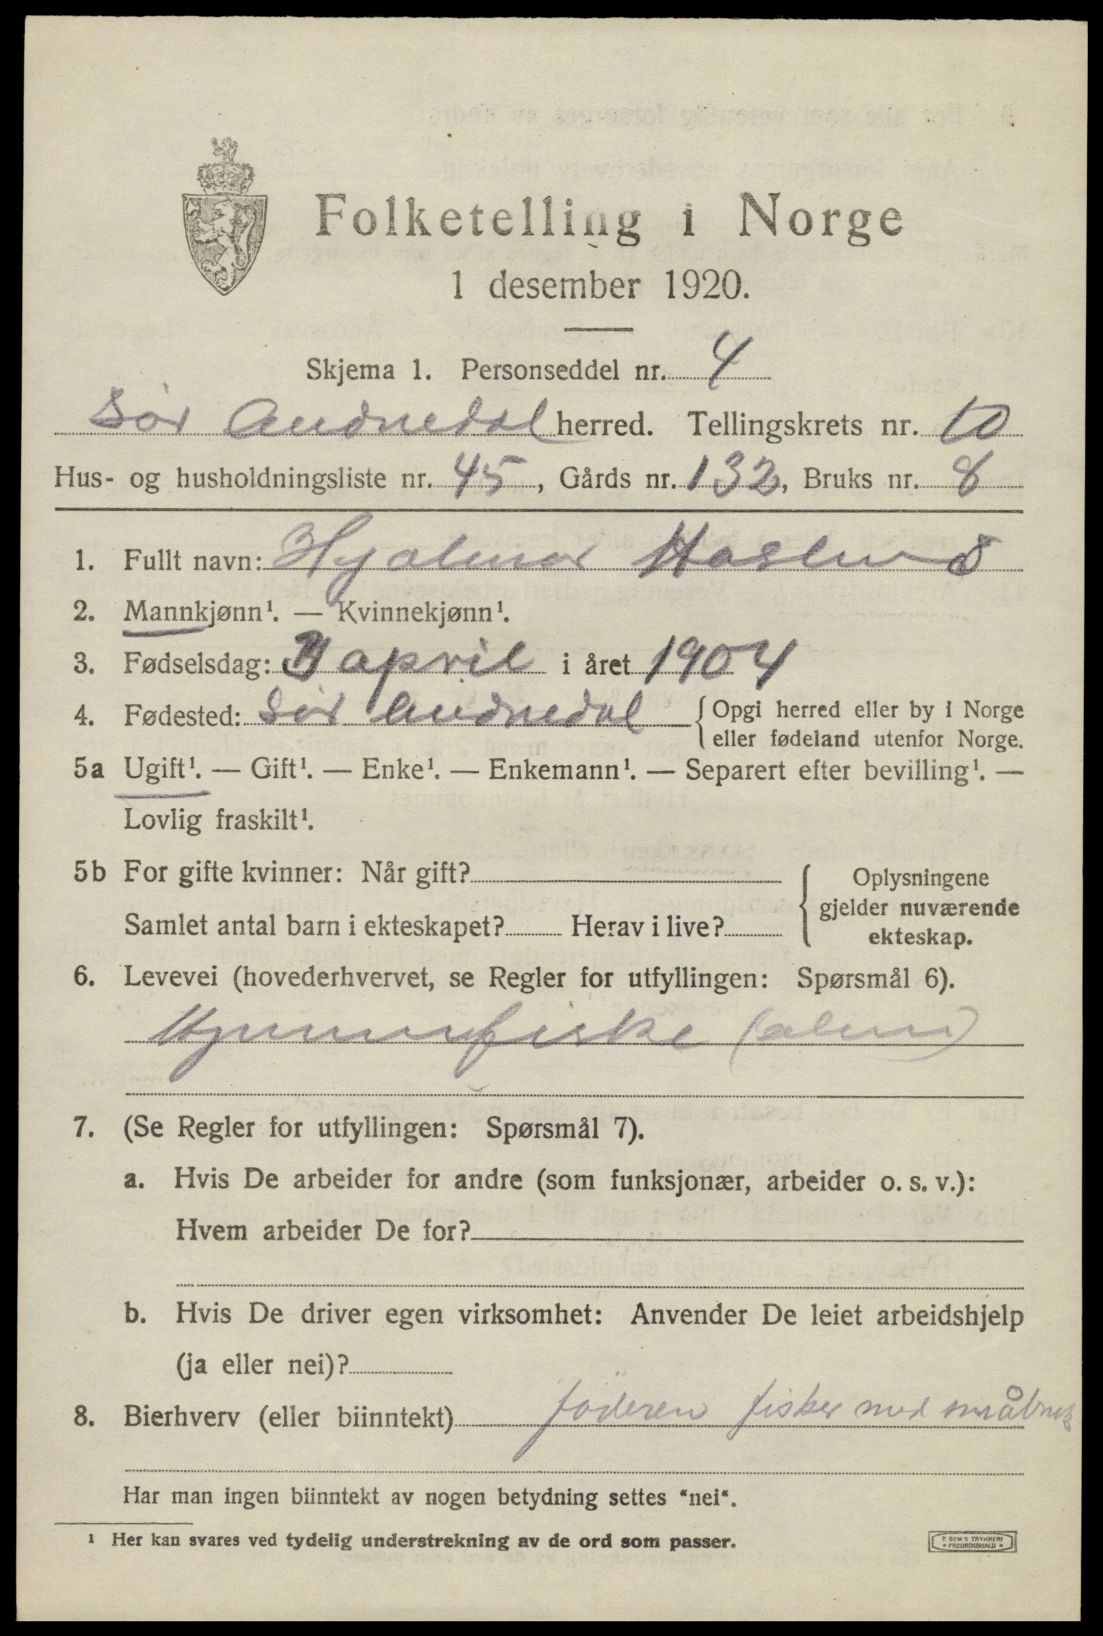 Folketelling i Norge
1 desember 1920.
Skjema 1. Personseddel nr. 4
Sør Audnedal herred. Tellingskrets nr. 10
Hus- og husholdningsliste nr. 45, Gårds nr. 132, Bruks nr. 8
1. Fullt navn: Hjalmar
2. Mannkjønn¹. — Kvinnekjønn¹.
3. Fødselsdag: april i året 1904
4. Fødested: Sør Audnedal { Opgi herred eller by i Norge
eller fødeland utenfor Norge.
5a Ugift¹. — Gift¹. — Enke¹. — Enkemann¹. — Separert efter bevilling¹. —
Lovlig fraskilt¹.
5b For gifte kvinner: Når gift?
Samlet antal barn i ekteskapet? Herav i live?
{ Oplysningene
gjelder nuværende
ekteskap.
6. Levevei (hovederhvervet, se Regler for utfyllingen: Spørsmål 6).
Hjemmefiske
7. (Se Regler for utfyllingen: Spørsmål 7).
a. Hvis De arbeider for andre (som funksjonær, arbeider o. s. v.):
Hvem arbeider De for?
b. Hvis De driver egen virksomhet: Anvender De leiet arbeidshjelp
(ja eller nei)?
8. Bierhverv (eller biinntekt) faderen fisker med småbruk
Har man ingen biinntekt av nogen betydning settes "nei".
¹ Her kan svares ved tydelig understrekning av de ord som passer.
F. SEM'S TRYKKERI
• FREDRIKSHALD •